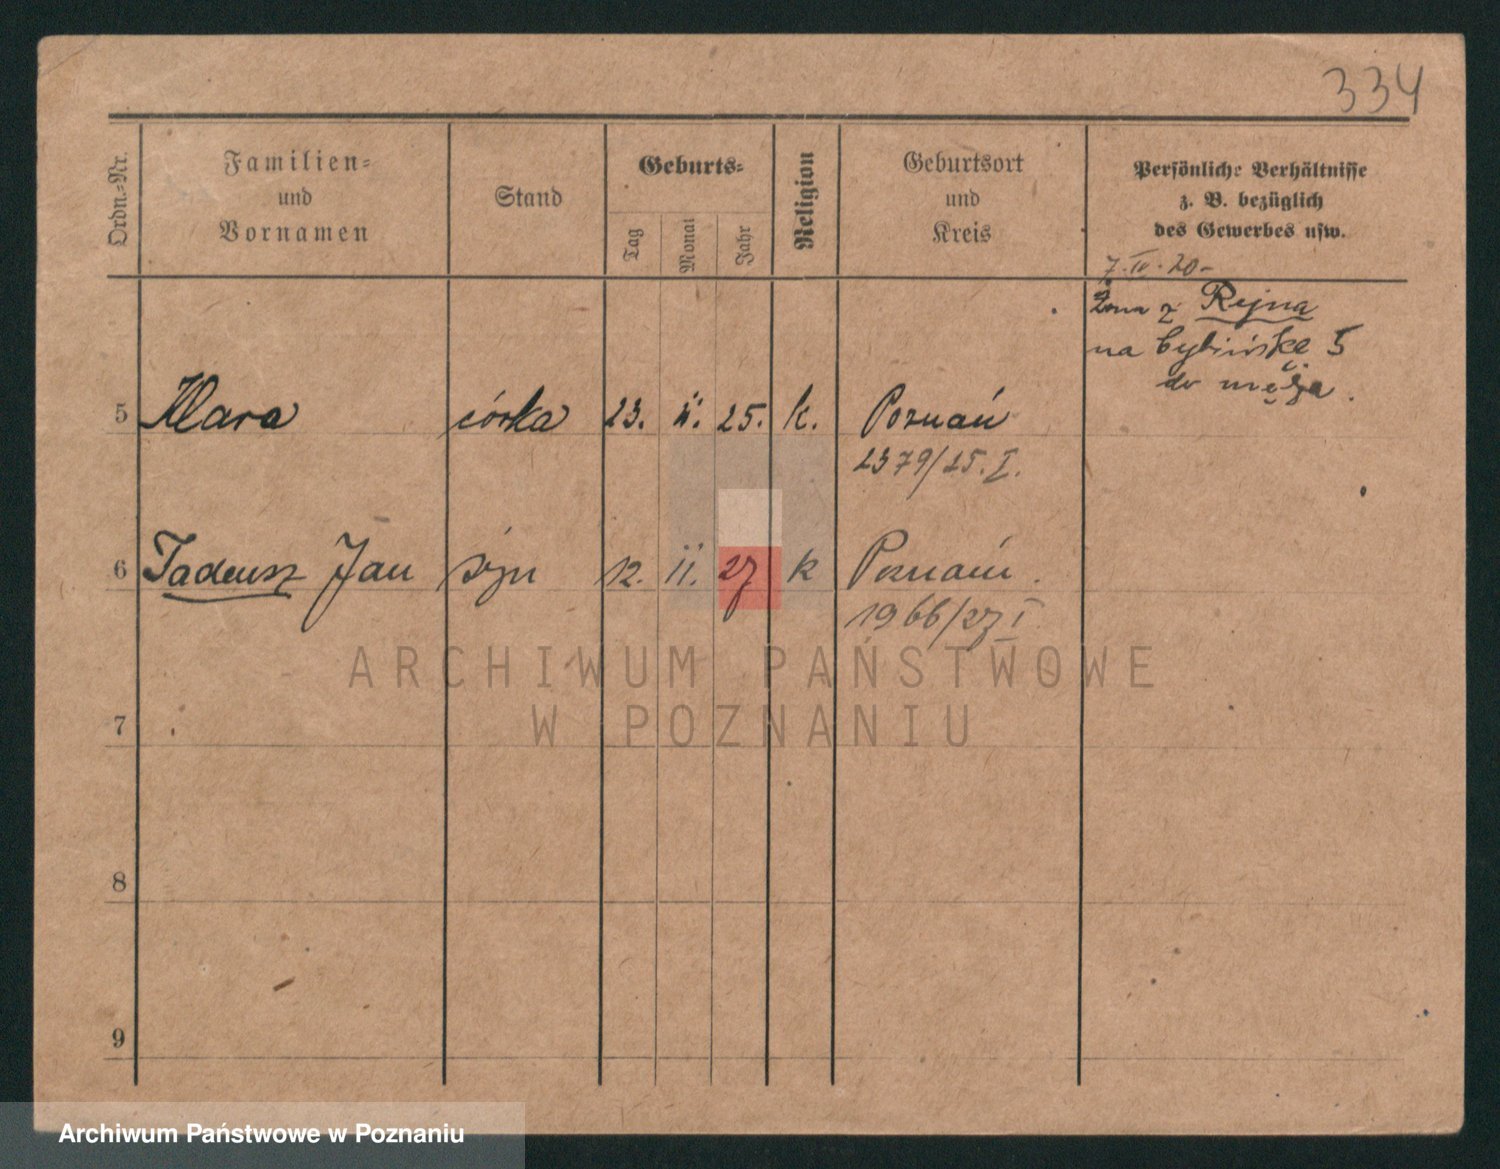 334
Ordn.=Nr.
Familien=
und
Vornamen
Stand
Geburts=
Tag
Monat
Jahr
Religion
Geburtsort
und
Kreis
Persönliche Verhältnisse
z. B. bezüglich
des Gewerbes usw.
7.IV.20-
Żona z Rejna
na Cybińskę 5
do męża.
5 Klara córka 23. II. 25. k. Poznań
2379/25. I.
6 Tadeusz Jan syn 12. II. 27 k Poznań.
1966/27 I
ARCHIWUM PAŃSTWOWE
W POZNANIU
7
8
9
Archiwum Państwowe w Poznaniu